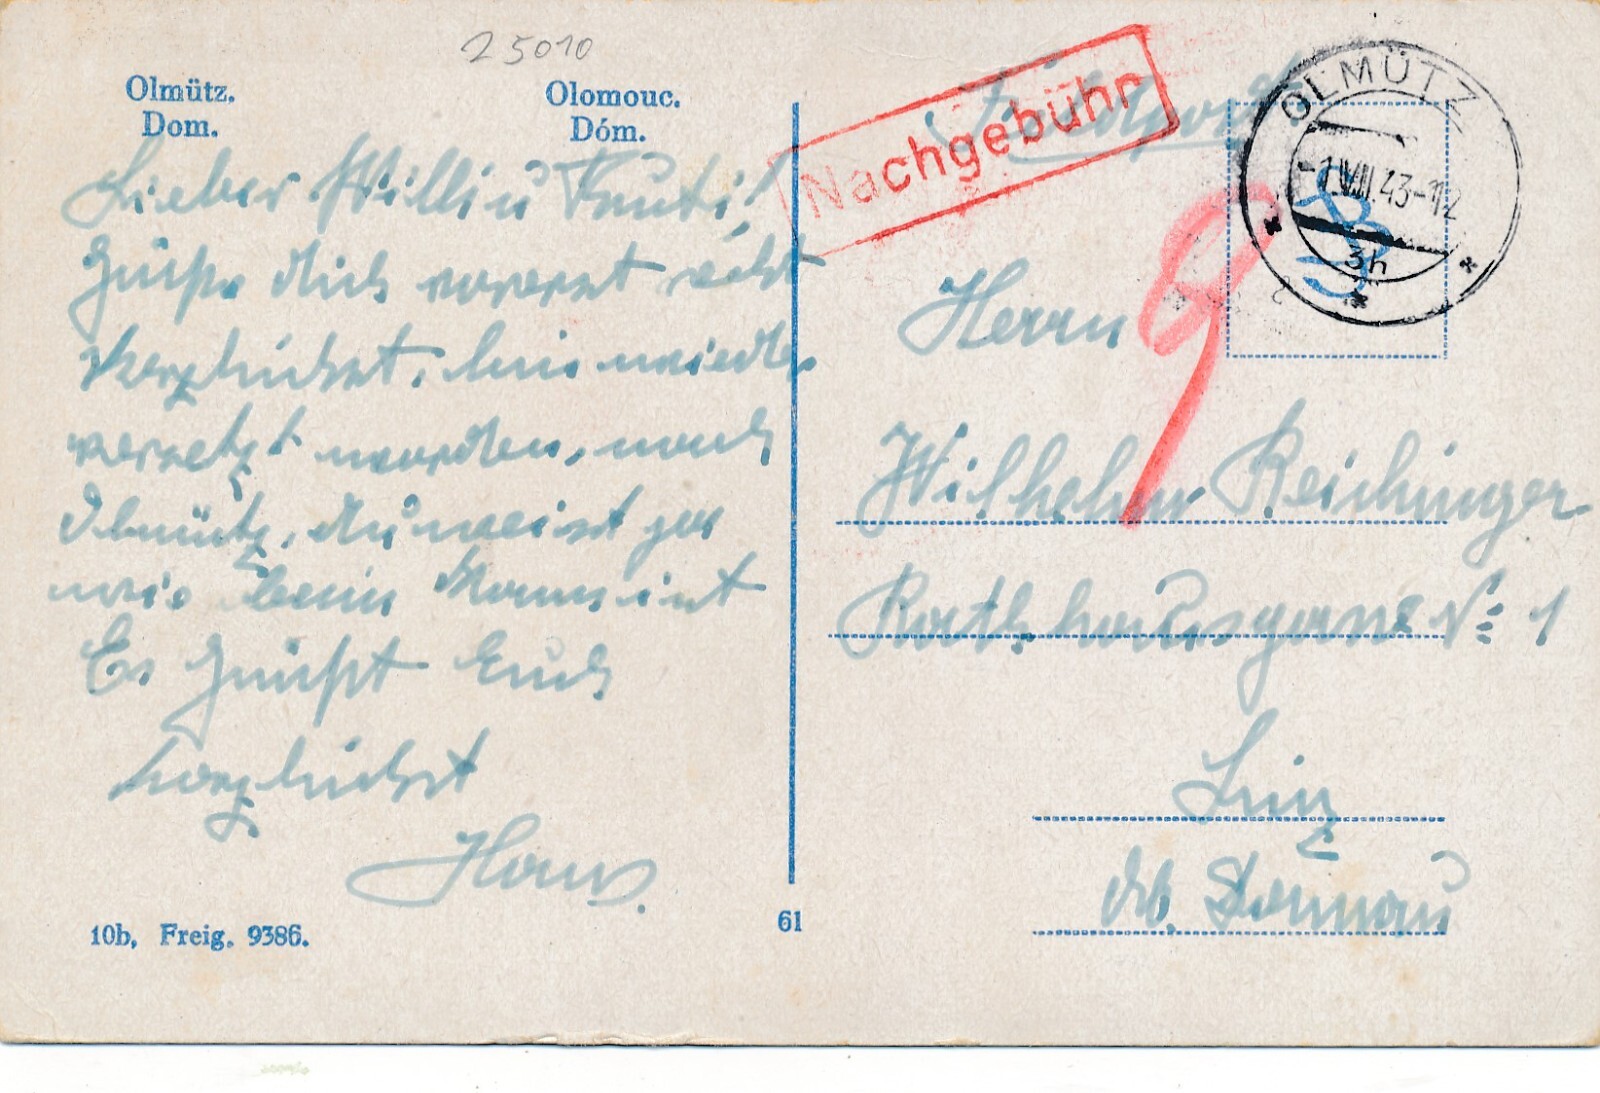 25010
Olmütz.
Dom.
Olomouc.
Dóm.
Lieber Willi u
Grüße dich vorerst recht
herzlichst, bin wieder
versetzt worden, nach
Olmütz, du weist ja
wie beim Kommist
Es grüßt Euch
herzlichst
Hans.
10b, Freig. 9386.
61
Feldpost
Nachgebühr
OLMÜTZ
43-12
3h
9
Herrn
Wilhelm Reichinger
Rathhausgasse No 1
Linz
Donau